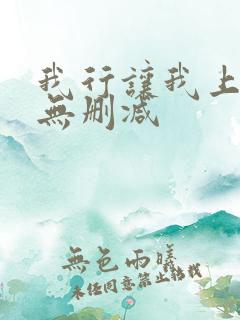 我行讓我上
無删减
無色雨曦
未经同意禁止转载